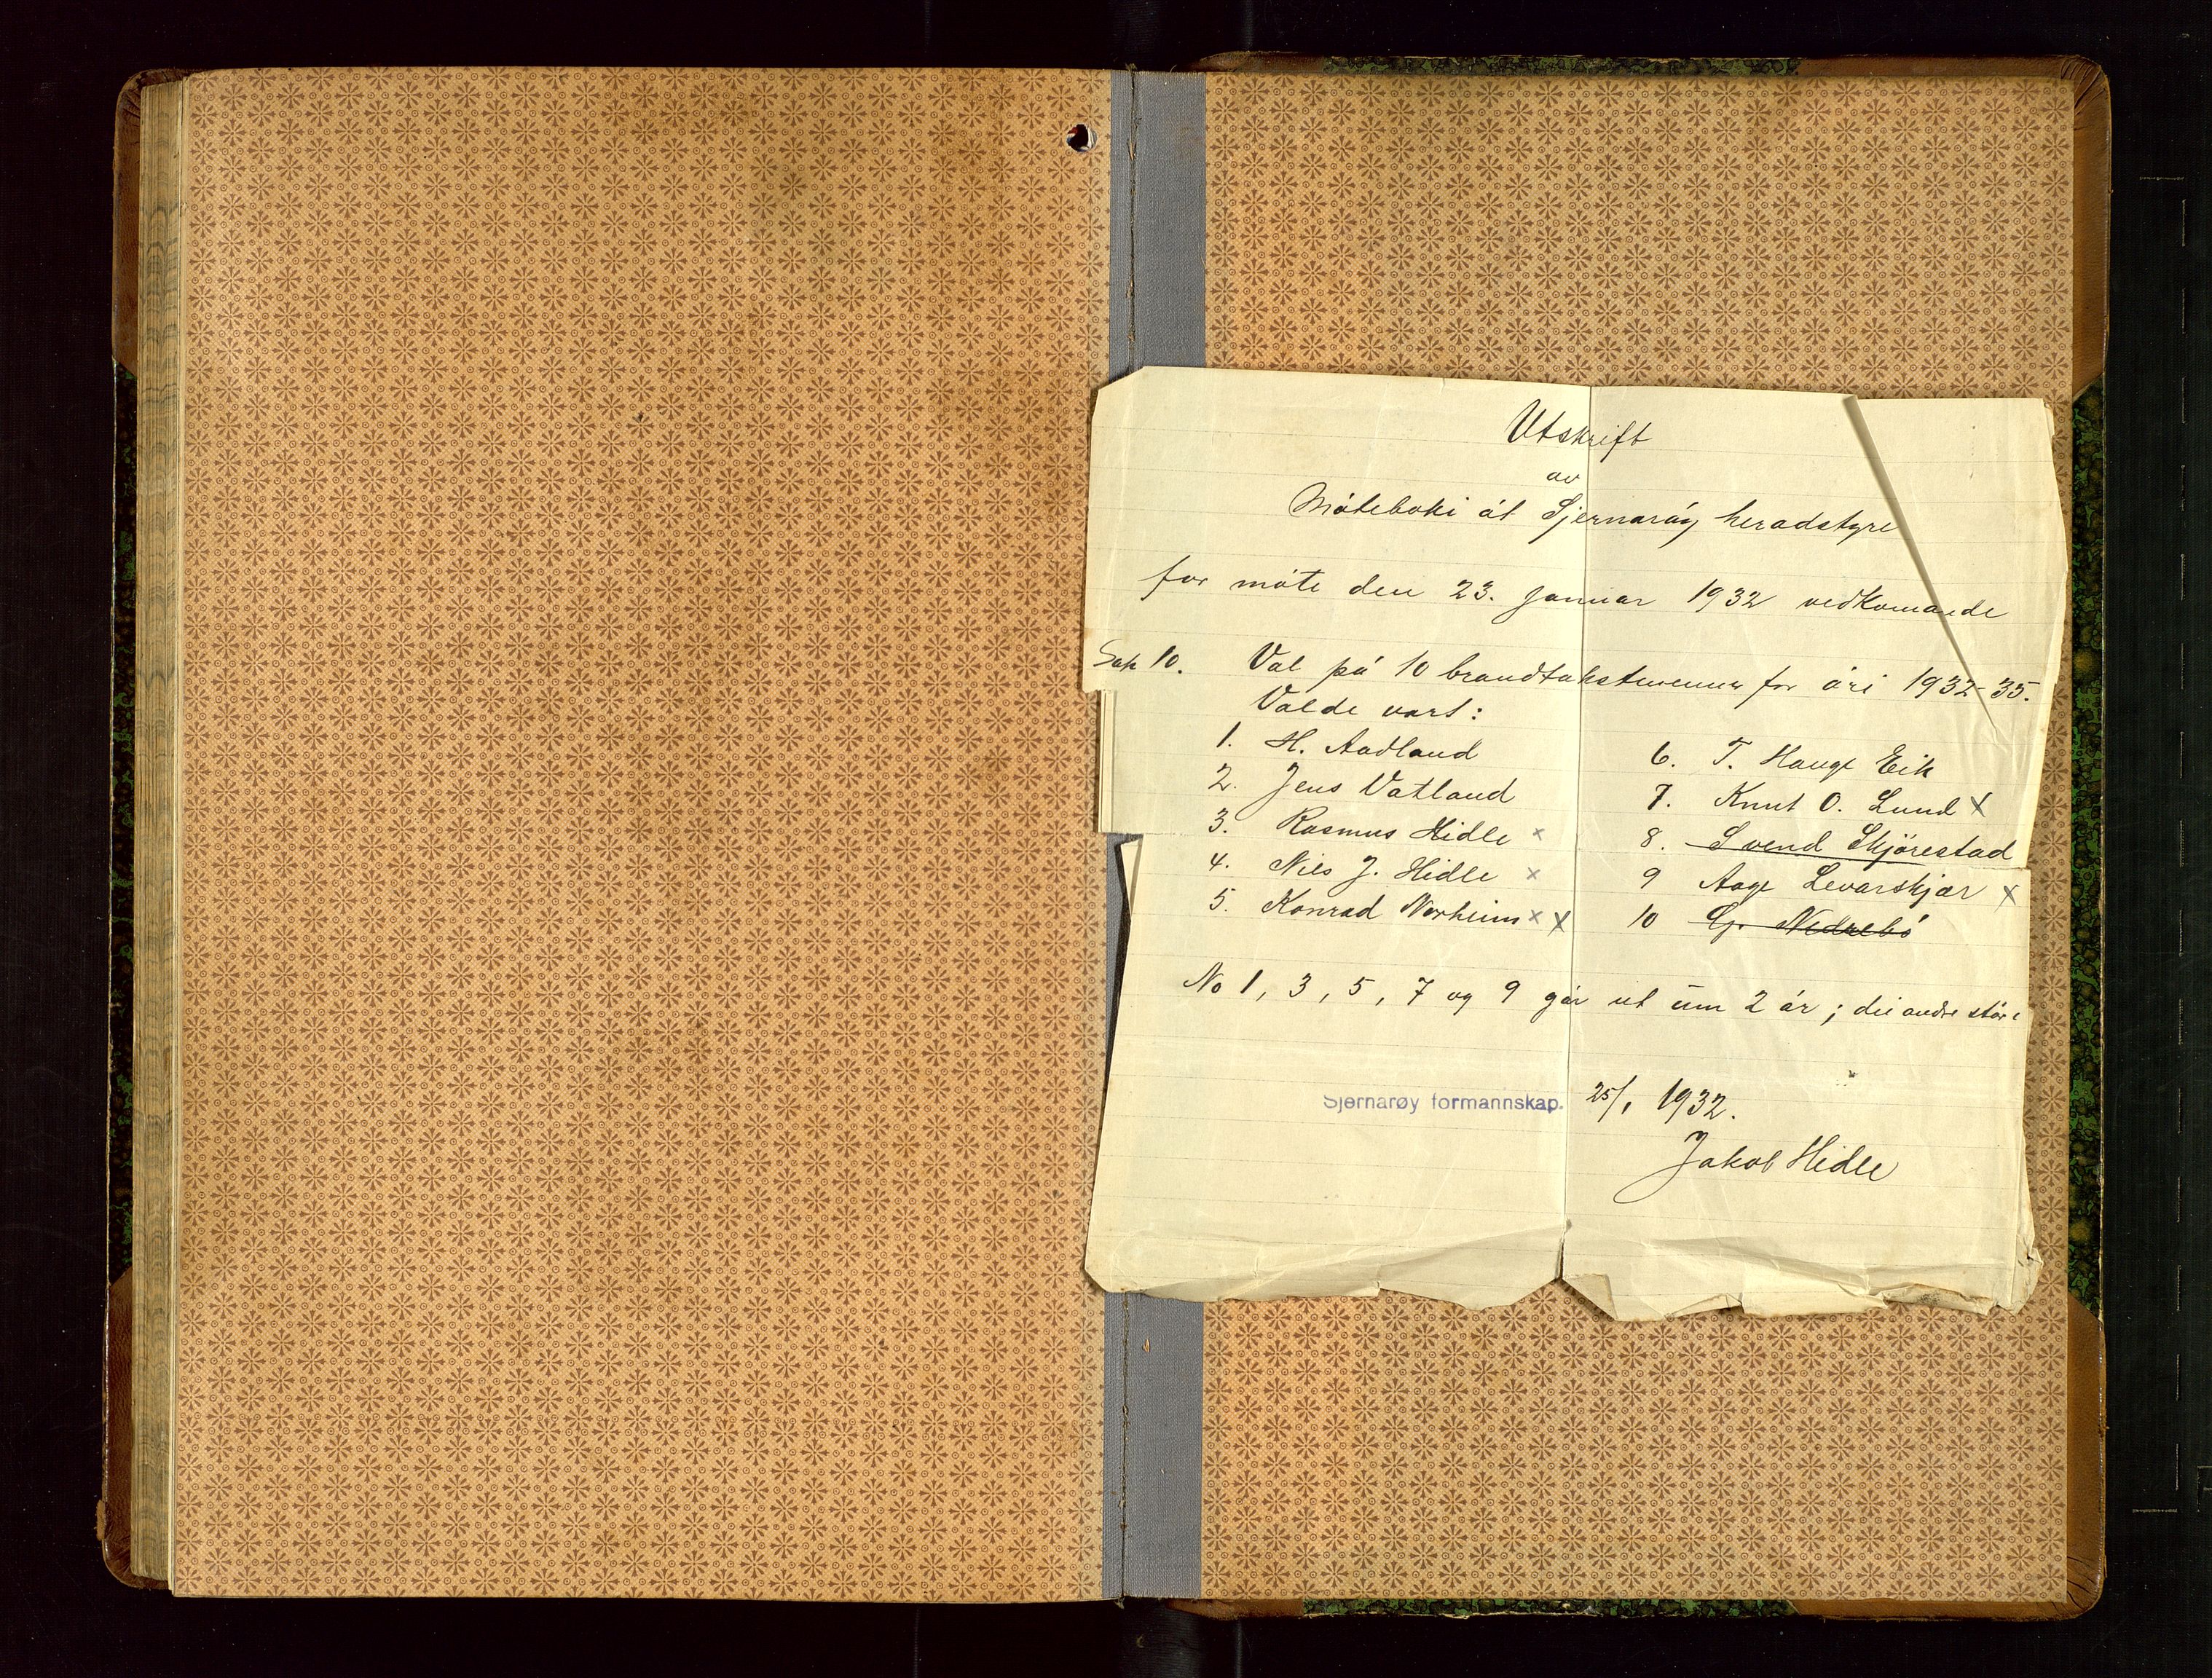 Utskrift
av
Møteboki åt Sjernarøy heradstyre
for møte den 23. januar 1932 vedkomande
Sak 10. Val på 10 brandtakstmenner for åri 1932-35.
Valde vart:
1. H. Aadland
2. Jens Vatland
3. Rasmus Hidle x
4. Nils J. Hidle x
5. Konrad Norheim x x
6. T. Hauge Eik
7. Knut O. Lund x
8. Svend Skjørestad
9 Aage Levarskjær x
10 G. Nedrebø
No 1, 3, 5, 7 og 9 går ut um 2 år; dei andre
Sjernarøy formannskap. 25/1 1932.
Jakob Hidle